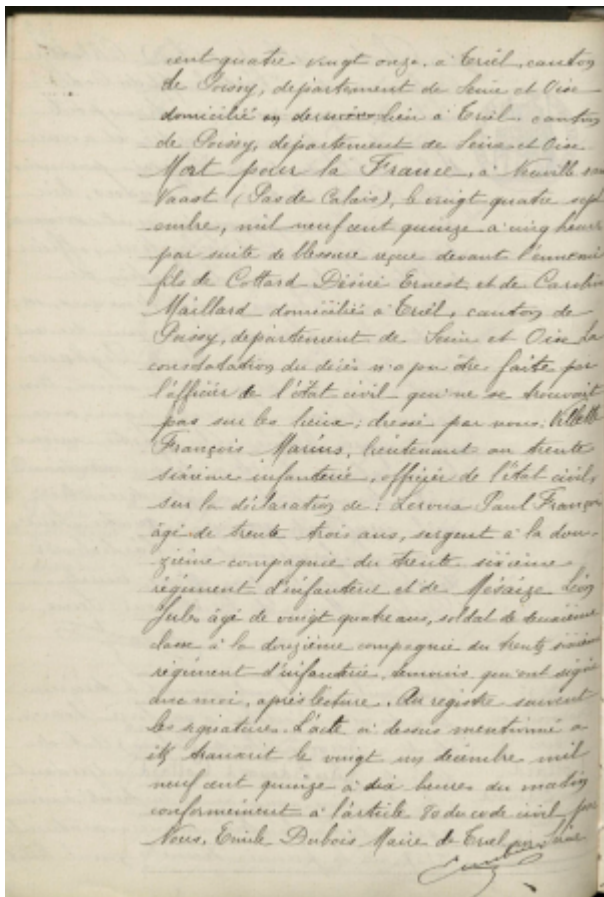 cent quatre vingt onze, à Triel, canton
de Poissy, département de Seine et Oise
domicilié en dernier lieu à Triel, canton
de Poissy, département de Seine et Oise
Mort pour la France, à Neuville
Vaast (Pas de Calais), le vingt quatre sept
embre, mil neuf cent quinze à cinq heures
par suite de blessure reçue devant l'ennemi
fils de Cottard Désiré Ernest et de Caroline
Maillard domiciliés à Triel, canton de
Poissy, département de Seine et Oise La
constatation du décès n'a pu être faite par
l'officier de l'état civil qui ne se trouvait
pas sur les lieux; dressé par nous,
François Marius, lieutenant au trente
sixième infanterie, officier de l'état civil,
sur la déclaration de: Leroux Paul François
âgé de trente trois ans, sergent à la dou-
zième compagnie du trente sixième
régiment d'infanterie et de Mésaize Léon
Jules âgé de vingt quatre ans, soldat de deuxième
classe à la douzième compagnie du trente sixième
régiment d'infanterie, témoins qui ont signé
avec moi, après lecture. Au registre suivent
les signatures. L'acte ci dessus mentionné a
été transcrit le vingt un décembre mil
neuf cent quinze à dix heures du matin
conformément à l'article 80 du code civil par
Nous, Emile Dubois Maire de Triel sur Seine